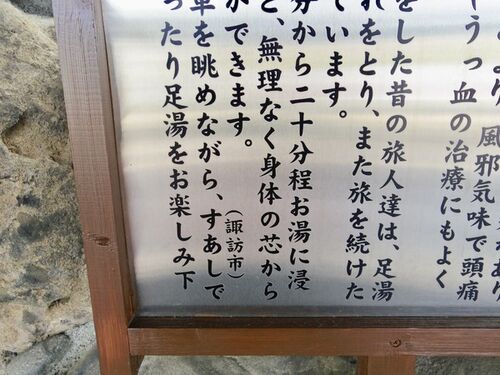 風邪気味で頭痛
うっ血の治療にもよく
をした昔の旅人達は、足湯
れをとり、また旅を続けた
います。
分から二十分程お湯に浸
と、無理なく身体の芯から
ができます。
車を眺めながら、すあしで
ったり足湯をお楽しみ下
(諏訪市)